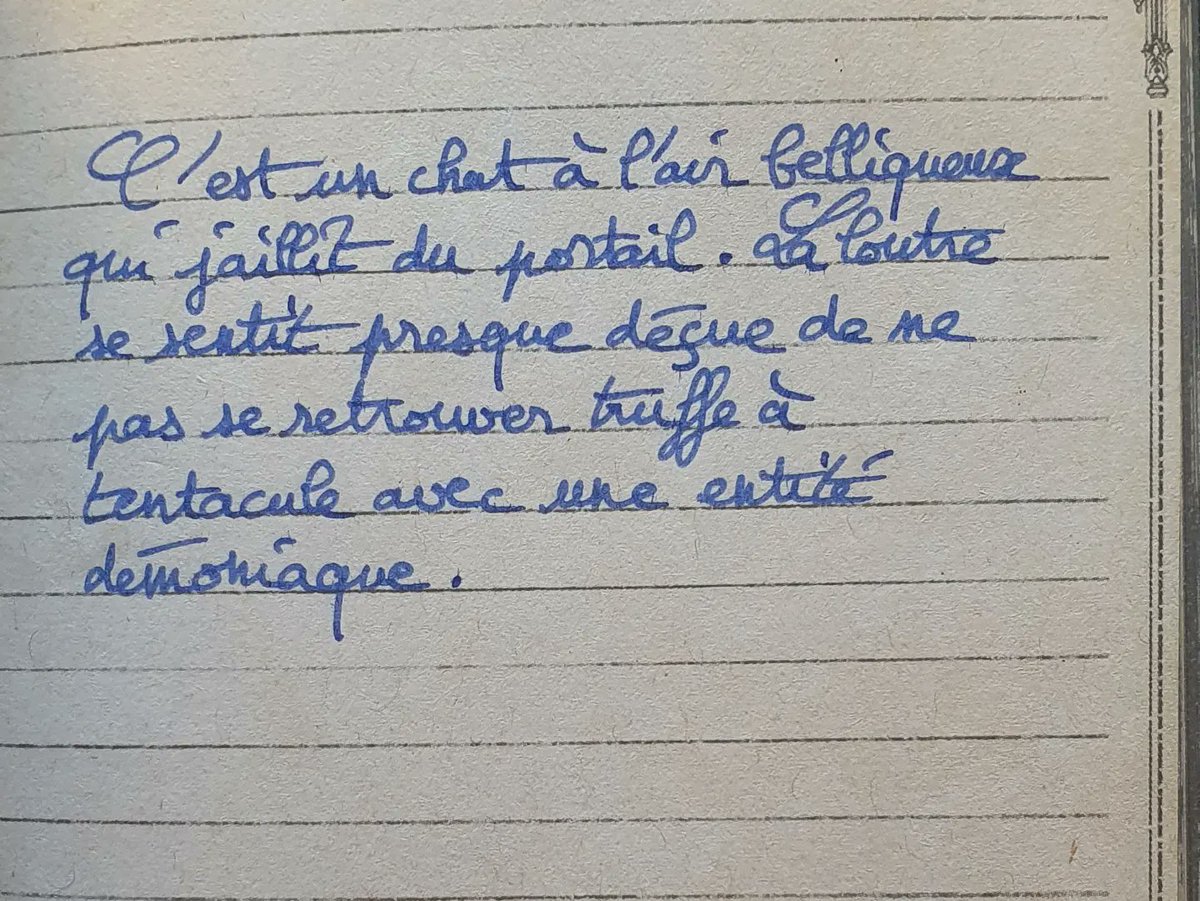 C'est un chat à l'air belliqueux
qui jaillit du portail. La loutre
se sentit presque déçue de ne
pas se retrouver truffe à
tentacule avec une entité
démoniaque.